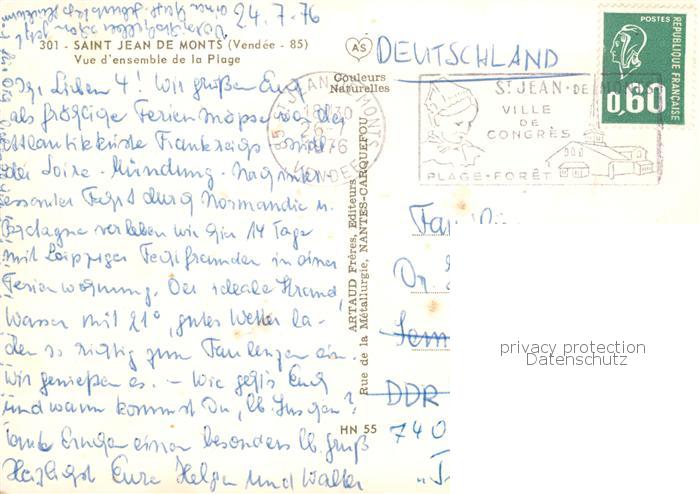 24.7.76
301 - SAINT JEAN DE MONTS (Vendée - 85)
Vue d'ensemble de la Plage
AS
Couleurs
Naturelles
DEUTSCHLAND
POSTES
REPUBLIQUE FRANÇAISE
0,60
ST JEAN DE MONTS
18H30
26-7
1976
VENDEE
ST JEAN-DE-MONTS
VILLE
DE
CONGRÈS
PLAGE-FORÊT
Ihr Lieben 4! Wir grüßen Euch
als fröhliche Ferienmöpse von der
Atlantikküste Frankreichs südl.
der Loire-Mündung. Nach inter-
essanter Fahrt durch Normandie u.
Bretagne verleben wir hier 14 Tage
mit Leipziger Freunden in einer
Ferienwohnung. Der ideale Strand,
Wasser mit 21°, gutes Wetter la-
den so richtig zum Faulenzen ein.
Wir genießen es. – Wie geht's Euch
und wann kommst Du, lb.
einen besonders lb. Gruß
Herzlichst Eure Helga und Walter
ARTAUD Frères, Editeurs
Rue de la Métallurgie, NANTES-CARQUEFOU
HN 55
Fam
Dr.
DDR
740
privacy protection
Datenschutz